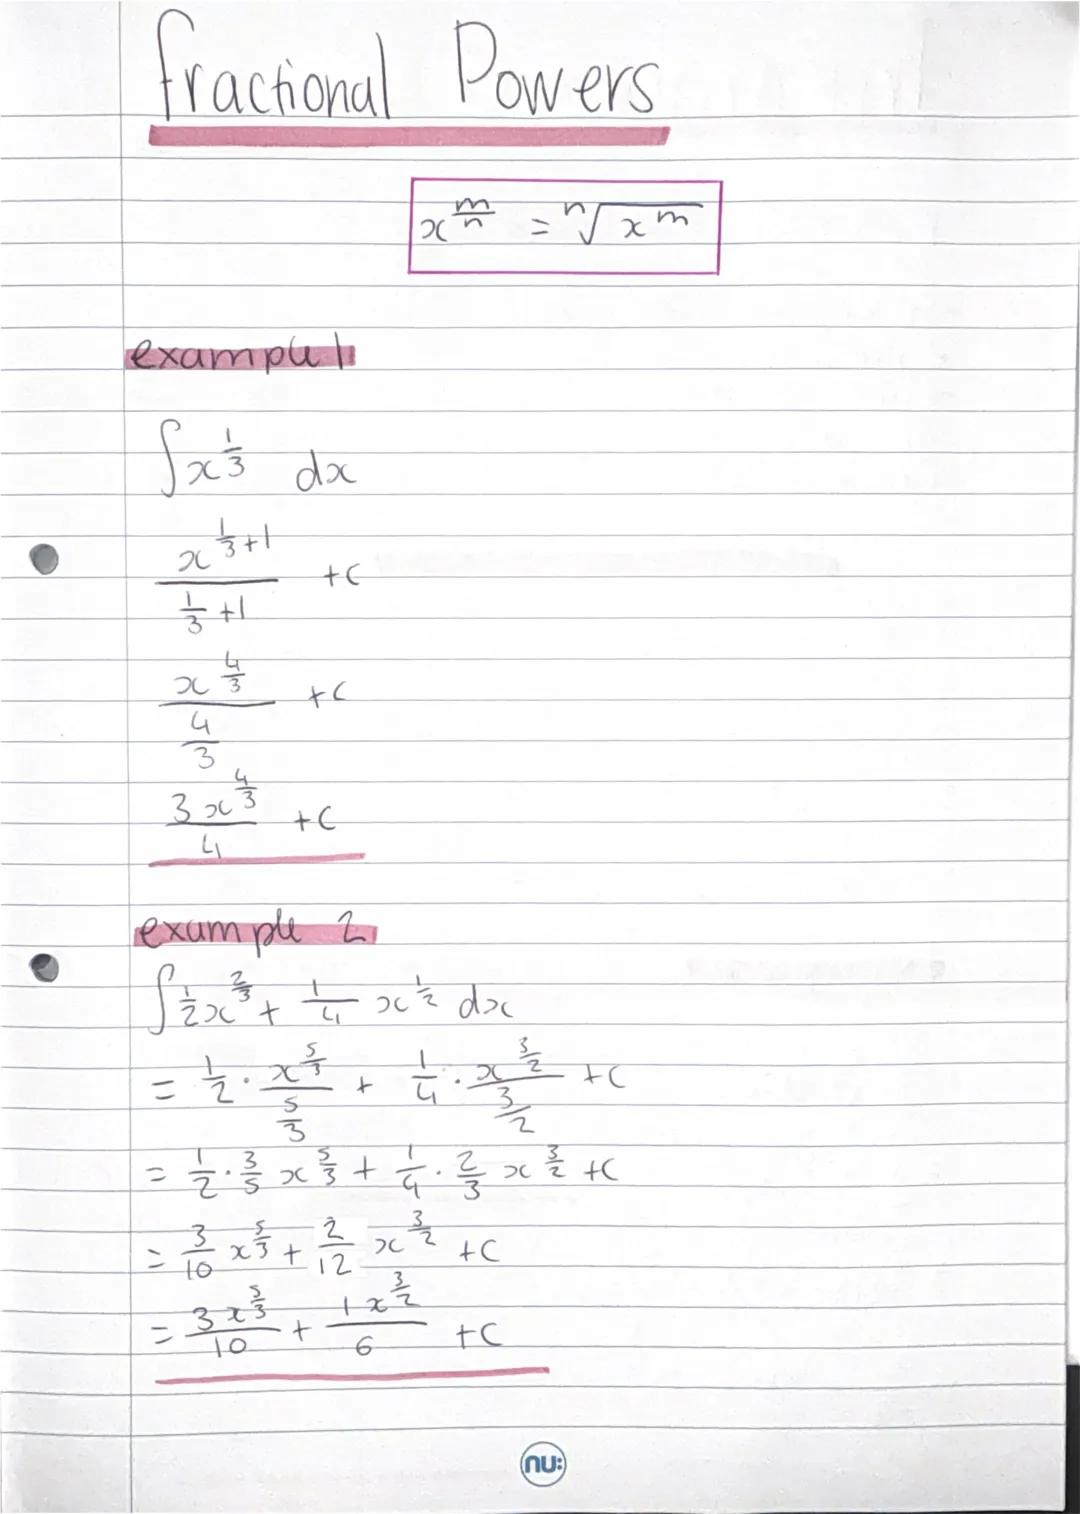 fractional Powers
x^(m/n) = ⁿ√(x^m)
example 1
∫x^(1/3) dx
x^(1/3+1) / (1/3+1) +C
x^(4/3) / (4/3) +C
3x^(4/3) / 4 +C
example 2
∫1/2x^(2/3) + 1/4 x^(1/2) dx
= 1/2 · x^(5/3) / (5/3) + 1/4 · x^(3/2) / (3/2) +C
= 1/2 · 3/5 x^(5/3) + 1/4 · 2/3 x^(3/2) +C
= 3/10 x^(5/3) + 2/12 x^(3/2) +C
= 3x^(5/3) / 10 + 1x^(3/2) / 6 +C
nu: